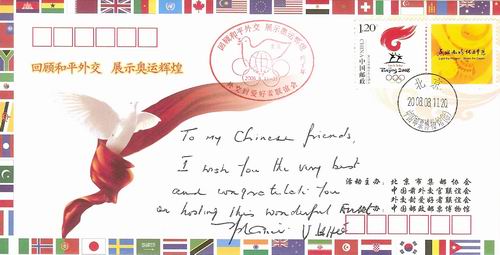 回顾和平外交 展示奥运辉煌
回顾和平外交 展示奥运辉煌
外交封爱好者联谊会
1.20
CHINA
中国邮政
Beijing 2008
北京
2008.08.11.20
To my Chinese friends,
I wish you the very best
and congratulate you
on hosting this wonderful
活动主办:北京市集邮协会
中国前外交官联谊会
外交封爱好者联谊会
中国邮政邮票博物馆